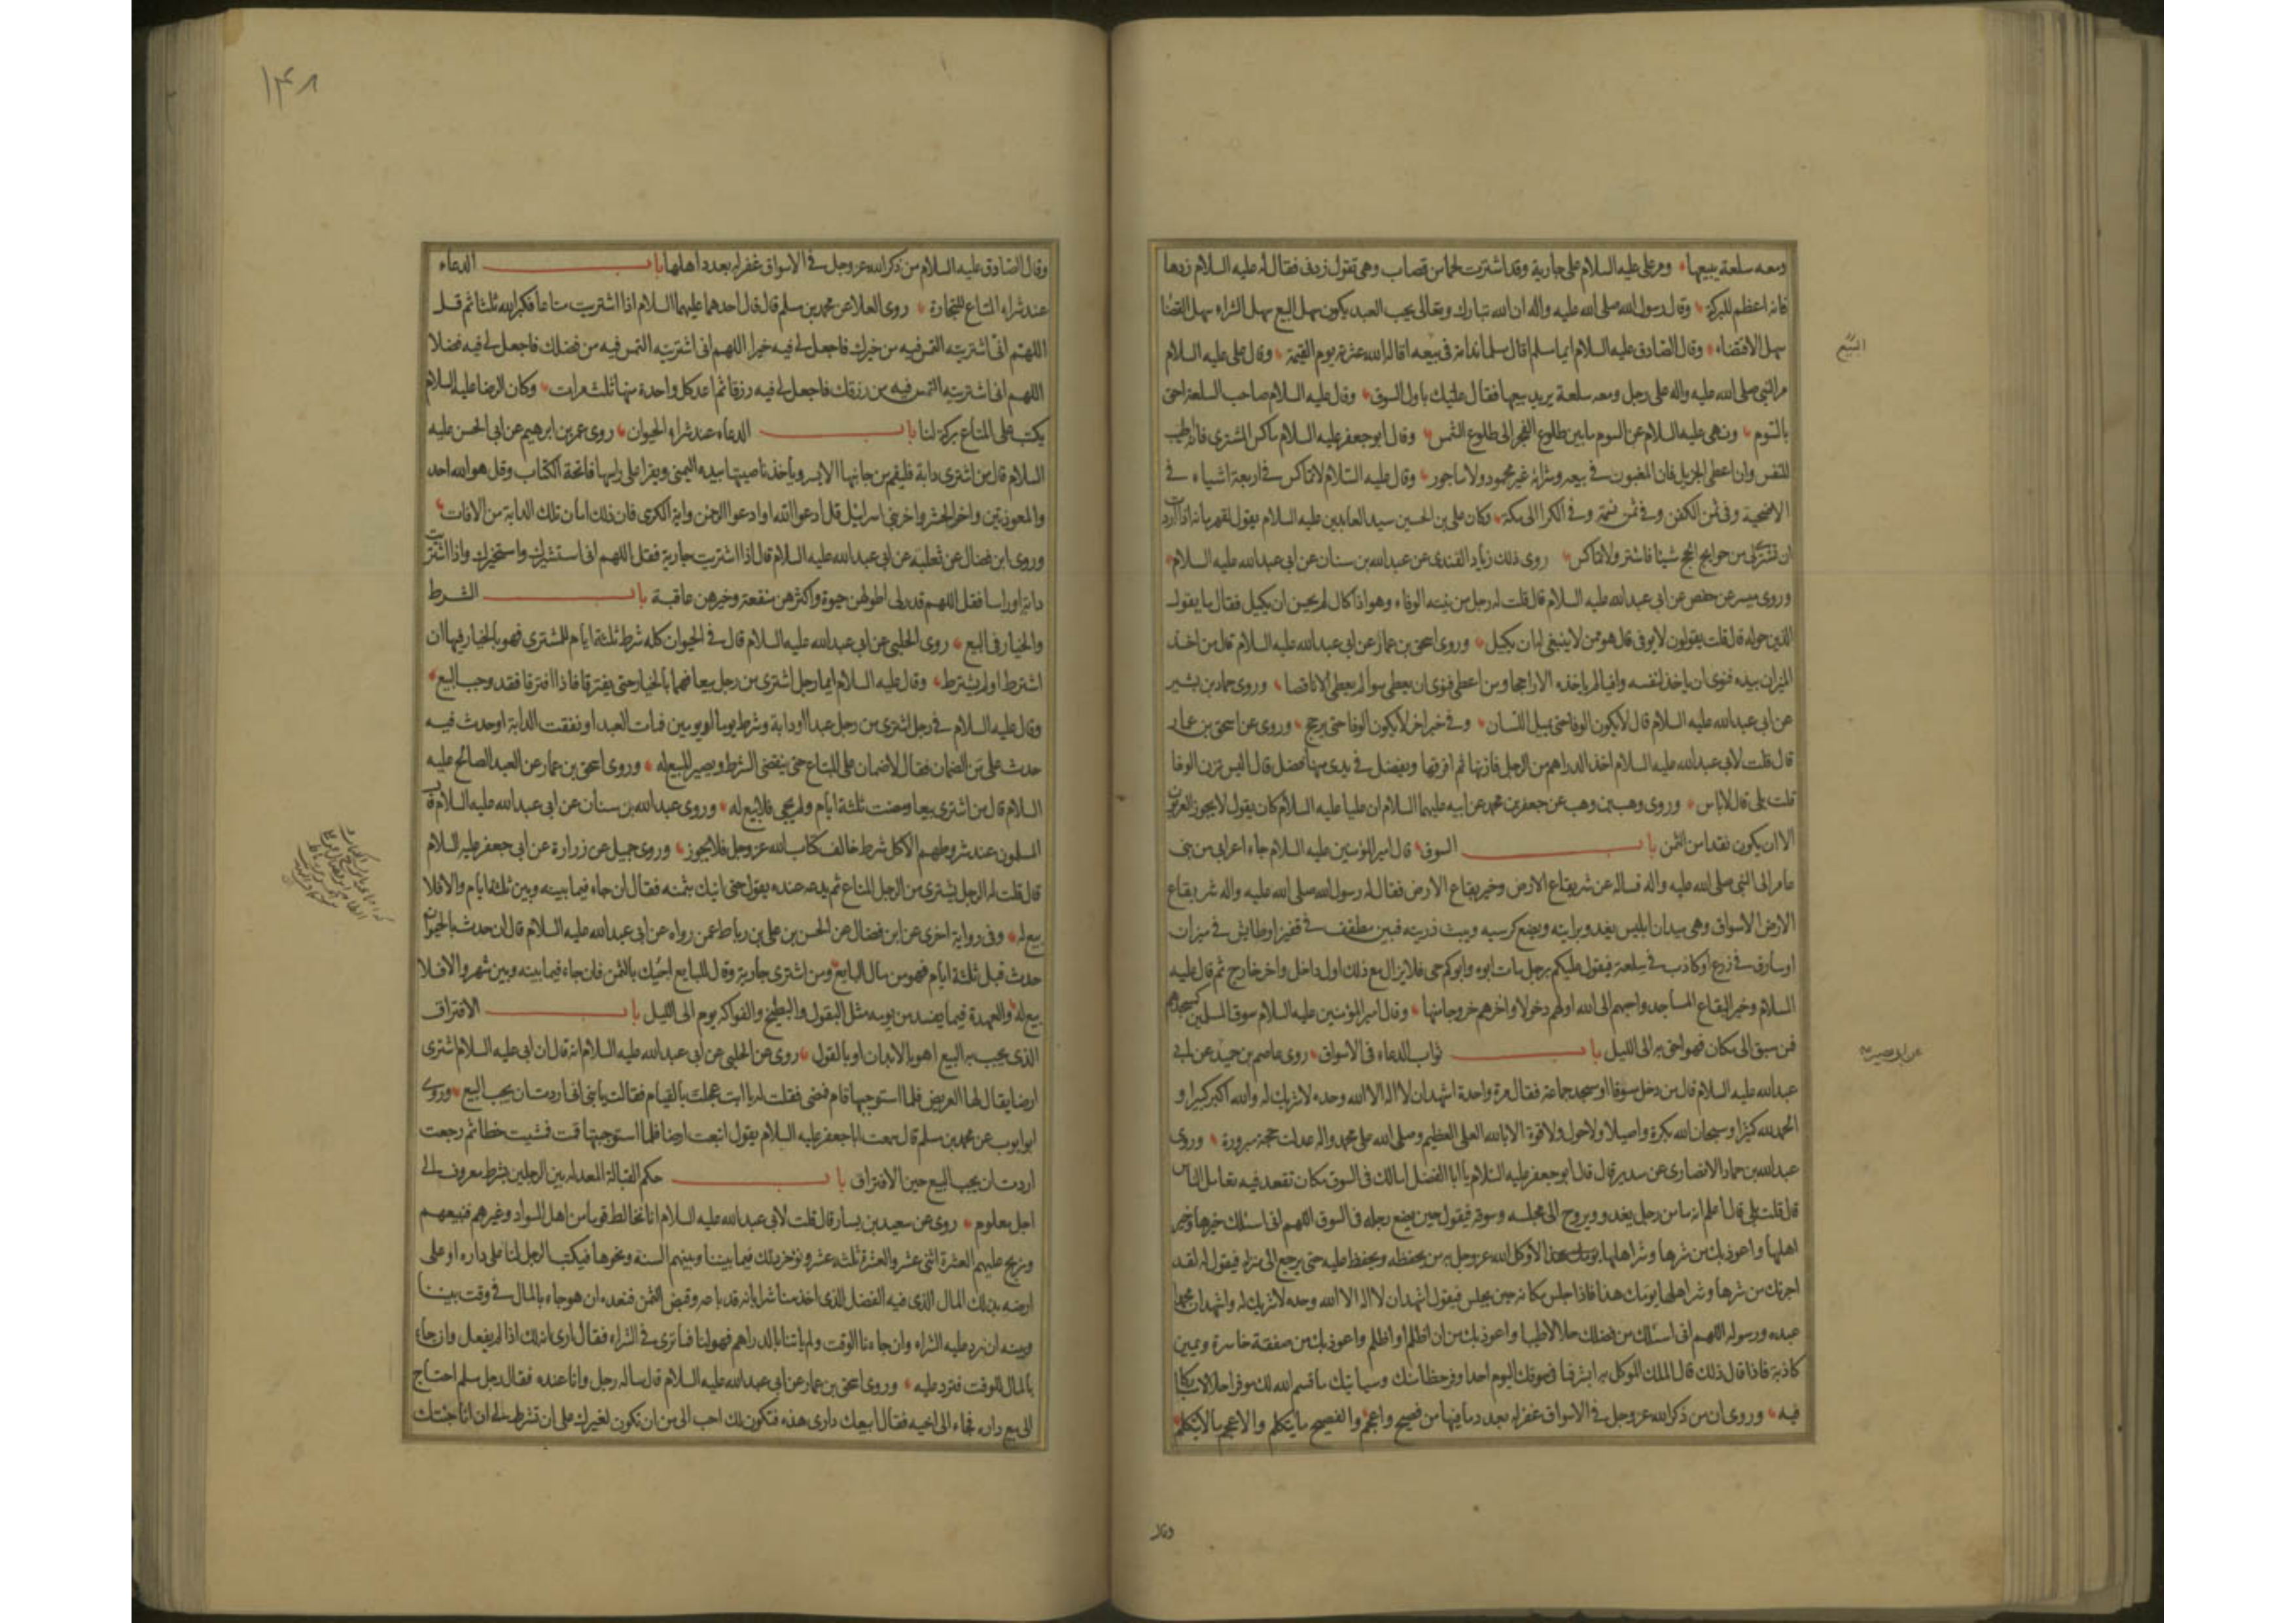 ومعه سلعة يبيعها ومر على عليه السلام على جارية وقد اشترت لحما من قصاب وهى تقول زدنى فقال له عليه السلام زدها
فانه اعظم للبركة وقال رسول الله صلى الله عليه واله ان الله تبارك وتعالى يحب العبد يكون سهل البيع سهل الشراء سهل القضا
سهل الاقتضاء وقال الصادق عليه السلام ايما مسلم اقال مسلما ندامة فى بيعه اقاله الله عثرته يوم القيمة وقال على عليه السلام
البيع
مر النبى صلى الله عليه واله على رجل ومعه سلعة يريد بيعها فقال عليك باول السوق وقال عليه السلام صاحب السلعة احق
بالسوم ونهى عليه السلام عن السوم ما بين طلوع الفجر الى طلوع الشمس وقال ابو جعفر عليه السلام ماكس المشترى فانه اطيب
للنفس وان اعطى الجزيل فان المغبون فى بيعه وشرائه غير محمود ولا ماجور وقال عليه السلام لا تماكس فى اربعة اشياء فى
الاضحية وفى ثمن الكفن وفى ثمن نسمة وفى الكرا الى مكة وكان على بن الحسين سيد العابدين عليه السلام يقول لقهرمانه اذا اردت
ان تشترى لى من حوايج الحج شيئا فاشتر ولا تماكس روى ذلك زياد القندى عن عبدالله بن سنان عن ابى عبدالله عليه السلام
وروى ميسر عن حفص عن ابى عبدالله عليه السلام قال قلت له رجل من نيته الوفاء وهو اذا كال لم يحسن ان يكيل فقال ما يقول
الذين حوله قال قلت يقولون لا يوفى قال هو ممن لا ينبغى له ان يكيل وروى اسحق بن عمار عن ابى عبدالله عليه السلام قال من اخذ
الميزان بيده فنوى ان ياخذ لنفسه وافيا لم ياخذه الا راجحا ومن اعطى فنوى ان يعطى سواء لم يعطى الا ناقصا وروى حماد بن بشير
عن ابى عبدالله عليه السلام قال لا يكون الوفا حتى يميل اللسان وفى خبر اخر لا يكون الوفا حتى يرجح وروى عن اسحق بن عمار
قال قلت لابى عبدالله عليه السلام اخذ الدراهم من الرجل فازنها ثم افرقها ويفضل فى يدى منها فضل قال اليس تزن الوفا
قلت بلى قال لا باس وروى وهب بن وهب عن جعفر بن محمد عن ابيه عليهما السلام ان عليا عليه السلام كان يقول لا يجوز العربون
الا ان يكون نقدا من الثمن باب السوق قال امير المؤمنين عليه السلام جاء اعرابى من بنى
عامر الى النبى صلى الله عليه واله فساله عن شر بقاع الارض وخير بقاع الارض فقال له رسول الله صلى الله عليه واله شر بقاع
الارض الاسواق وهى ميدان ابليس يغدو برايته ويضع كرسيه ويبث ذريته فبين مطفف فى قفيز او طايش فى ميزان
او سارق فى ذرع او كاذب فى سلعة فيقول عليكم برجل مات ابوه وابوكم حى فلا يزال مع ذلك اول داخل واخر خارج ثم قال عليه
السلام وخير البقاع المساجد واحبهم الى الله اولهم دخولا واخرهم خروجا منها وقال امير المؤمنين عليه السلام سوق المسلمين كمسجدهم
فمن سبق الى مكان فهو احق به الى الليل باب ثواب الدعاء فى الاسواق روى عاصم بن حميد عن ابى
عن ابى بصير
عبدالله عليه السلام قال من دخل سوقا او مسجد جماعة فقال مرة واحدة اشهد ان لا اله الا الله وحده لا شريك له والله اكبر كبيرا و
الحمد لله كثيرا وسبحان الله بكرة واصيلا ولا حول ولا قوة الا بالله العلى العظيم وصلى الله على محمد واله عدلت حجة مبرورة وروى
عبدالله بن حماد الانصارى عن سدير قال قال ابو جعفر عليه السلام يا ابا الفضل اما لك فى السوق مكان تقعد فيه تعامل الناس
قال قلت بلى قال اعلم انه ما من رجل يغدو ويروح الى مجلسه وسوقه فيقول حين يضع رجله فى السوق اللهم انى اسئلك خيرها وخير
اهلها واعوذ بك من شرها وشر اهلها الا وكل الله عز وجل به من يحفظه ويحفظ عليه حتى يرجع الى منزله فيقول له لقد
اجرتك من شرها وشر اهلها يومك هذا فاذا جلس مكانه حين يجلس فيقول اشهد ان لا اله الا الله وحده لا شريك له واشهد ان محمدا
عبده ورسوله اللهم انى اسئلك من فضلك حلالا طيبا واعوذ بك من ان اظلم او اظلم واعوذ بك من صفقة خاسرة ويمين
كاذبة فاذا قال ذلك قال الملك الموكل به ابشر فما فى سوقك اليوم احد اوفر حظا منك وسياتيك ما قسم الله لك موفرا حلالا مباركا
فيه وروى ان من ذكر الله عز وجل فى الاسواق غفر له بعدد ما فيها من فصيح واعجم والفصيح ما يتكلم والاعجم ما لا يتكلم
وقال
١٤٨
وقال الصادق عليه السلام من ذكر الله عز وجل فى الاسواق غفر له بعدد اهلها باب الدعاء
عند شراء المتاع للتجارة روى العلا عن محمد بن مسلم قال قال احدهما عليهما السلام اذا اشتريت متاعا فكبر الله ثلثا ثم قل
اللهم انى اشتريته التمس فيه من خيرك فاجعل لى فيه خيرا اللهم انى اشتريته التمس فيه من فضلك فاجعل لى فيه فضلا
اللهم انى اشتريته التمس فيه من رزقك فاجعل لى فيه رزقا ثم اعد كل واحدة منها ثلث مرات وكان الرضا عليه السلام
يكتب على المتاع بركة لنا باب الدعاء عند شراء الحيوان روى عمر بن ابرهيم عن ابى الحسن عليه
السلام قال من اشترى دابة فليقم من جانبها الايسر وياخذ ناصيتها بيده اليمنى ويقرا على راسها فاتحة الكتاب وقل هو الله احد
والمعوذتين واخر الحشر واخر بنى اسرائيل قل ادعوا الله او ادعوا الرحمن واية الكرسى فان ذلك امان تلك الدابة من الافات
وروى ابن فضال عن ثعلبة عن ابى عبدالله عليه السلام قال اذا اشتريت جارية فقل اللهم انى استشيرك واستخيرك واذا اشتريت
دابة او راسا فقل اللهم قدر لى اطولهن حيوة واكثرهن منفعة وخيرهن عاقبة باب الشرط
والخيار فى البيع روى الحلبى عن ابى عبدالله عليه السلام قال فى الحيوان كله شرط ثلثة ايام للمشترى فهو بالخيار فيها ان
اشترط او لم يشترط وقال عليه السلام ايما رجل اشترى من رجل بيعا فهما بالخيار حتى يفترقا فاذا افترقا فقد وجب البيع
وقال عليه السلام فى رجل اشترى من رجل عبدا او دابة وشرط يوما او يومين فمات العبد او نفقت الدابة او حدث فيه
حدث على من الضمان فقال لا ضمان على المبتاع حتى ينقضى الشرط ويصير المبيع له وروى اسحق بن عمار عن العبد الصالح عليه
السلام قال من اشترى بيعا ومضت ثلثة ايام ولم يجى فلا بيع له وروى عبدالله بن سنان عن ابى عبدالله عليه السلام قال
المسلمون عند شروطهم الا كل شرط خالف كتاب الله عز وجل فلا يجوز وروى جميل عن زرارة عن ابى جعفر عليه السلام
قال قلت له الرجل يشترى من الرجل المتاع ثم يدعه عنده يقول حتى اتيك بثمنه فقال ان جاء فيما بينه وبين ثلثة ايام والا فلا
بيع له وفى رواية اخرى عن ابن فضال عن الحسن بن على بن رباط عمن رواه عن ابى عبدالله عليه السلام قال ان حدث بالحيوان
حدث قبل ثلثة ايام فهو من مال البايع ومن اشترى جارية وقال للبايع اجيك بالثمن فان جاء فيما بينه وبين شهر والا فلا
بيع له والعهدة فيما يفسد من يومه مثل البقول والبطيخ والفواكه يوم الى الليل باب الافتراق
الذى يجب به البيع اهو بالابدان او بالقول روى عن الحلبى عن ابى عبدالله عليه السلام انه قال ان ابى عليه السلام اشترى
ارضا يقال لها العريض فلما استوجبها قام فمضى فقلت له يا ابت عجلت بالقيام فقال يا بنى انى اردت ان يجب البيع وروى
ابو ايوب عن محمد بن مسلم قال سمعت ابا جعفر عليه السلام يقول ابتعت ارضا فلما استوجبتها قمت فمشيت خطا ثم رجعت
اردت ان يجب البيع حين الافتراق باب حكم القبالة المعدلة بين الرجلين بشرط معروف الى
اجل معلوم روى عن سعيد بن يسار قال قلت لابى عبدالله عليه السلام انا نخالط قوما من اهل السواد وغيرهم فنبيعهم
ونربح عليهم العشرة اثنى عشر والعشرة ثلثة عشر ونؤخر ذلك فيما بيننا وبينهم السنة ونحوها فيكتب الرجل لنا على داره او على
ارضه بذلك المال الذى فيه الفضل الذى اخذ منا شراء بانه قد باعه وقبض الثمن فنعده ان هو جاء بالمال فى وقت بيننا
وبينه ان نرد عليه الشراء وان جاءنا الوقت ولم ياتنا بالدراهم فهو لنا فما ترى فى الشراء فقال ارى انه لك اذا لم يفعل وان جاء
بالمال للوقت فترد عليه وروى اسحق بن عمار عن ابى عبدالله عليه السلام قال ساله رجل وانا عنده فقال رجل مسلم احتاج
الى بيع داره فجاء الى اخيه فقال ابيعك دارى هذه فتكون لك احب الى من ان تكون لغيرك على ان تشرط لى ان انا جئتك